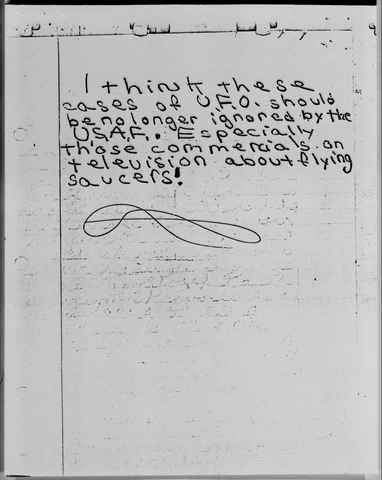 I think these
cases of U.F.O. should
be no longer ignored by the
U.S.A.F.. Especially
those commercials on
television about flying
saucers!